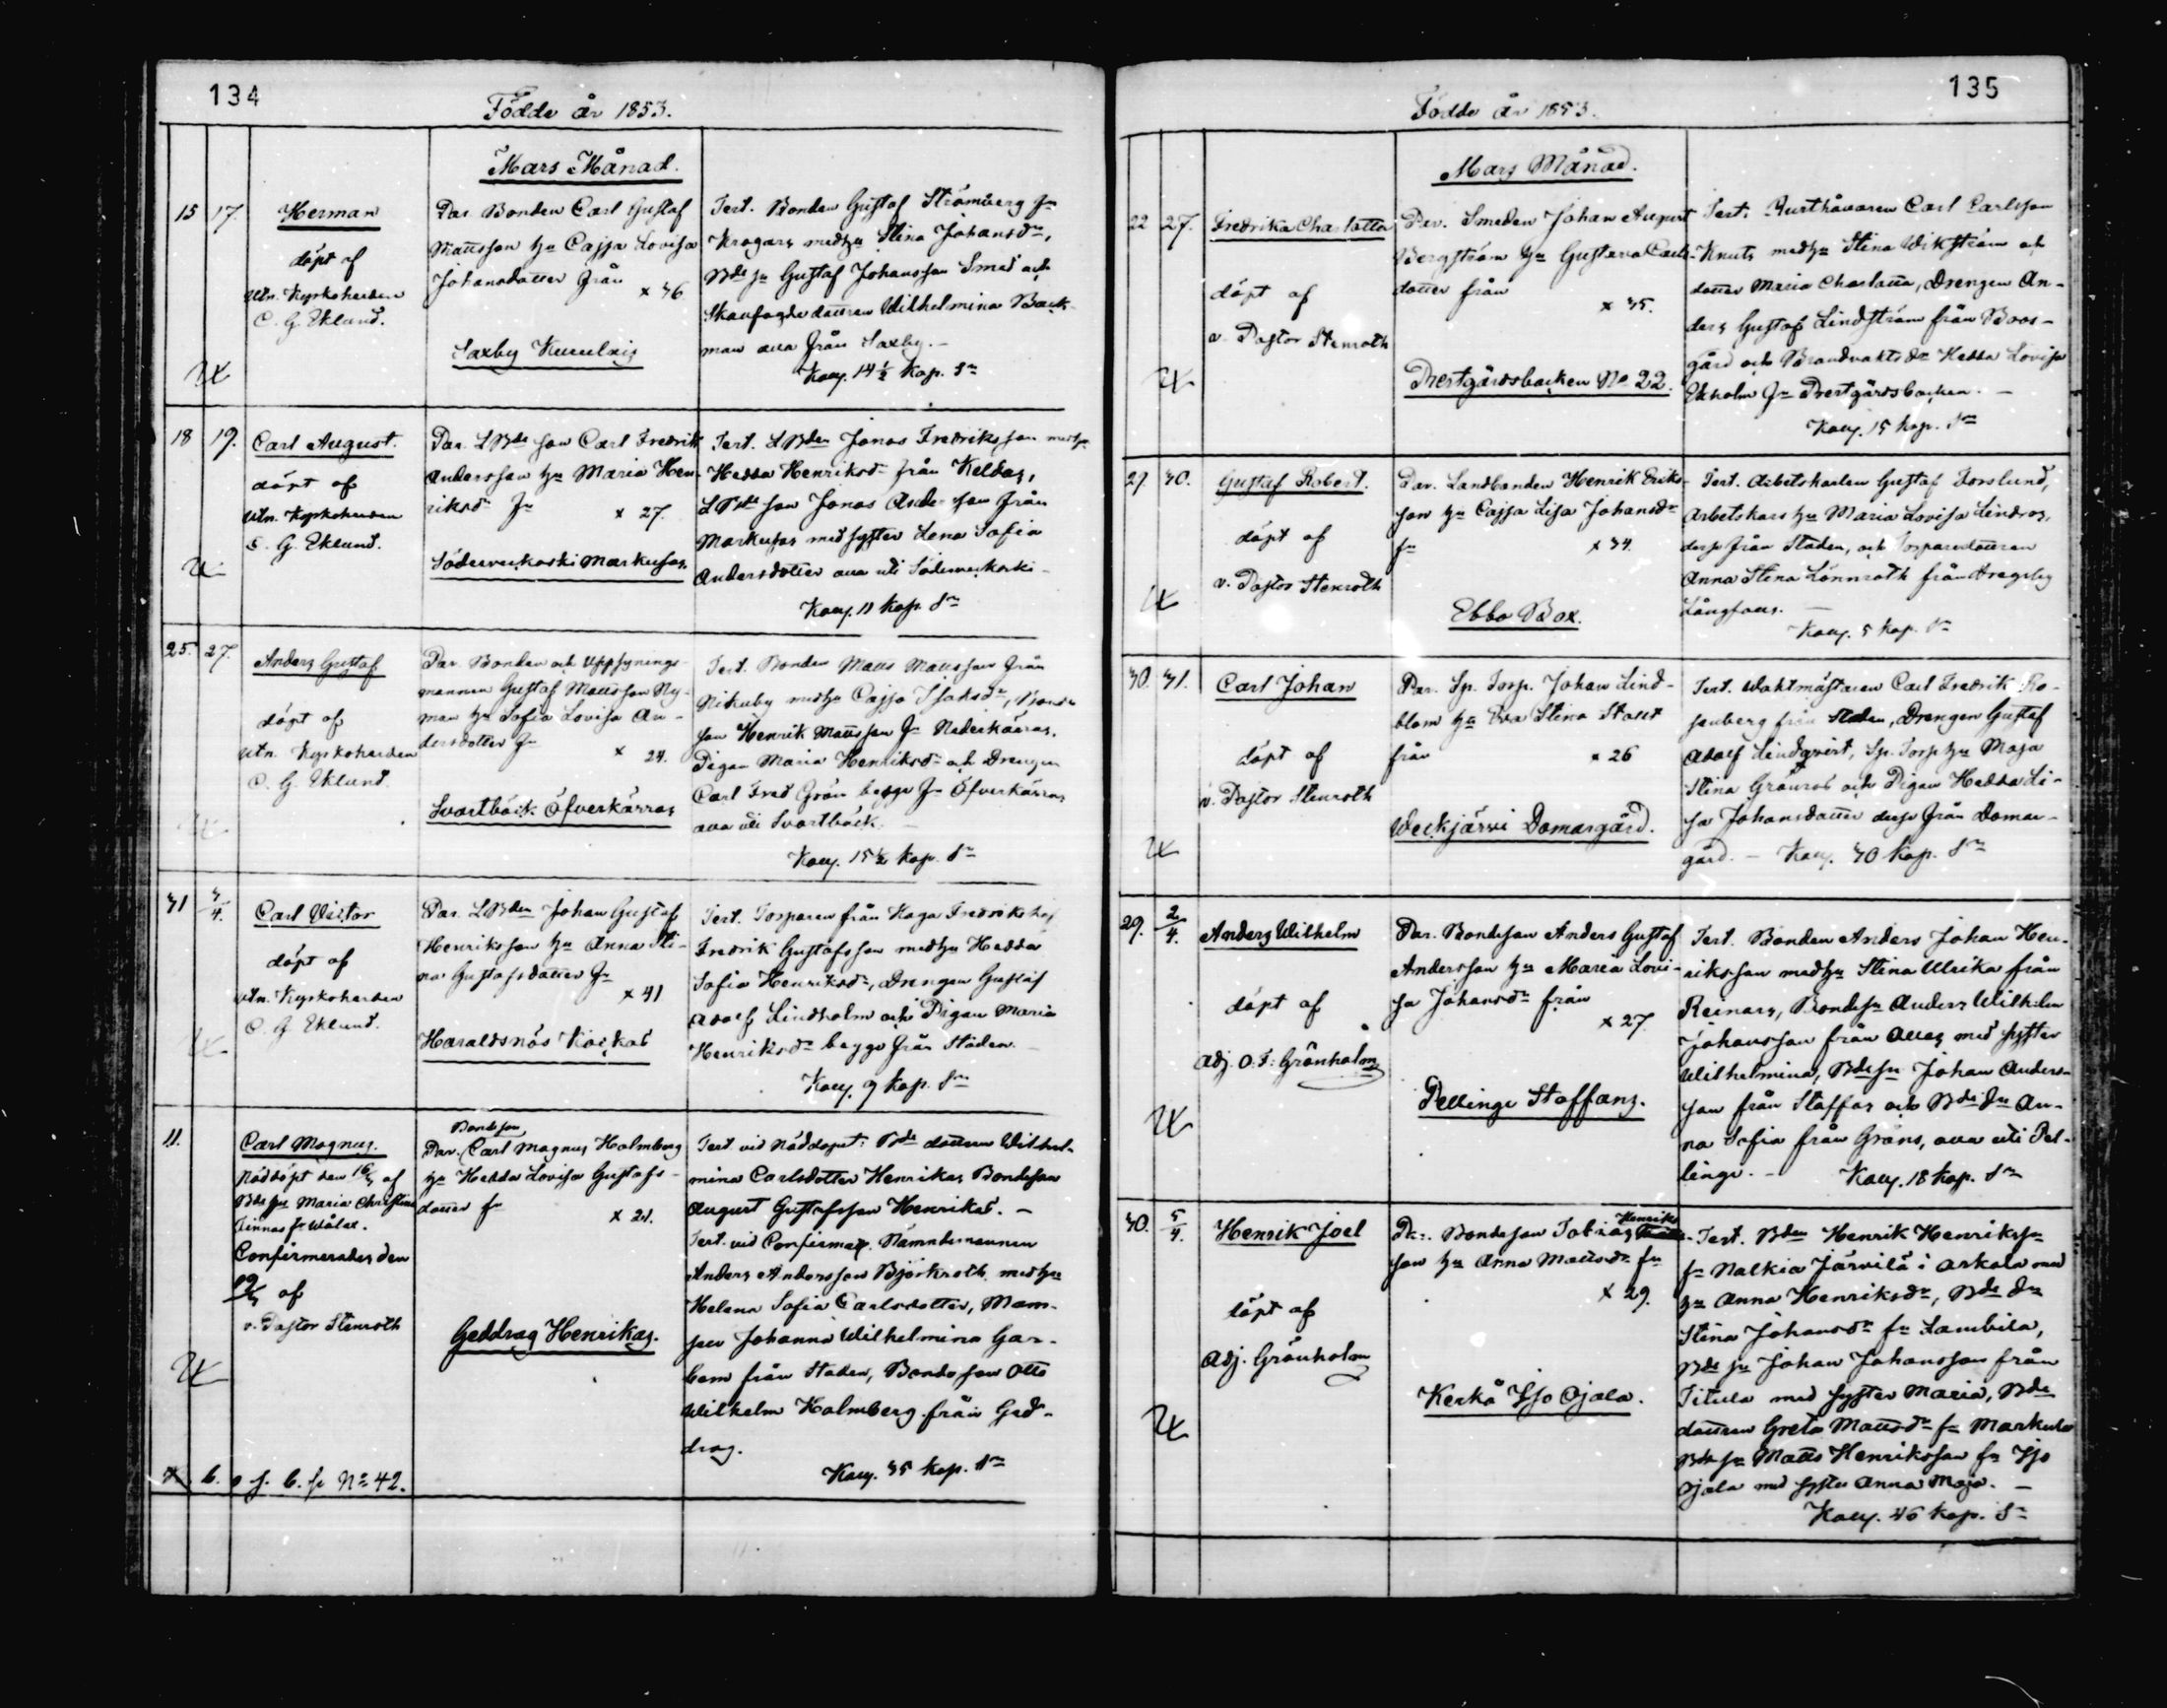 134
Födde år 1853.
Mars Månad.
15 17. Herman
döpt af
Utn. Kyrkoherden
C. G. Eklund.
Par. Bonden Carl Gustaf
Mattsson hu Cajsa Lovisa
Johansdotter från
x 36
Saxby
Test. Bonden Gustaf Strömberg fn
Krogars medhu Stina Johansdr,
Bde sn Gustaf Johansson Smed och
Skaufogde dottren Wilhelmina Back-
man alla från Saxby.
Kauy. 14 1/2 kop. Sr
18 19. Carl August.
döpt af
Utn. Kyrkoherden
C. G. Eklund.
Par. LBde son Carl Fredrik
Andersson hu Maria Hen-
riksdr fn x 27.
Söderveckoski Markusas.
Test. LBden Jonas Fredriksson medhu
Hedda Henriksdr från Keldas,
LBde son Jonas Andersson från
Markusas med syster Lena Sofia
Andersdotter alla uti Söderveckoski
Kauy. 11 kop. Sr
25. 27. Anders Gustaf
döpt af
Utn. Kyrkoherden
C. G. Eklund.
Par. Bonden och Uppsynings-
mannen Gustaf Mattsson Ny-
man hu Sofia Lovisa An-
dersdotter fn
x 24.
Svartbäck Öfverkärras
Test. Bonden Matts Mattsson från
Nikuby medhu Cajsa Isaksdr, Bonde
son Henrik Mattsson fn Nederkärras,
Pigan Maria Henriksdr och Drengen
Carl Fred Grön begge fn Öfverkärras
alla uti Svartbäck.
Kauy. 15 1/2 kop. Sr
31 3/4. Carl Victor
döpt af
Utn. Kyrkoherden
C. G. Eklund.
Par. LBden Johan Gustaf
Henriksson hu Anna Sti-
na Gustafsdotter fn
x 41
Haraldsnös Kockas
Test. Torparen från Haga Fredrikshof
Fredrik Gustafsson medhu Hedda
Sofia Henriksdr, Drengen Gustaf
Adolf Lindholm och Pigan Maria
Henriksdr begge från Staden.
Kauy. 9 kop. Sr
11. Carl Magnus.
Nöddöpt den 16/3 af
Bde hu Maria Christina
Confirmerades den
19/3 af
v. Pastor Stenroth
Bondeson
Par. Carl Magnus Holmberg
hu Hedda Lovisa Gustafs-
dotter fn
x 21.
Geddrag Henrikas.
Test vid nöddopet: Bde dottren Wilhel-
mina Carlsdotter Henrikas Bondeson
August Gustafsson Henrikas. —
Test. vid Confirma. Nämndemannen
Anders Andersson Björkroth medhu
Helena Sofia Carlsdotter, Mam-
sell Johanna Wilhelmina Gar-
bom från Staden, Bonde son Otto
Wilhelm Holmberg från Ged-
drag.
Kauy. 35 kop. Sr
No 42.
135
Födde år 1853.
Mars Månad.
22 27. Fredrika Charlotta
döpt af
v. Pastor Stenroth
Par. Smeden Johan August
Bergström hu Gustava Carls-
dotter från
x 35.
Prestgårdsbacken No 22.
Test. Carl Carlsson
Knuts medhu Stina Wikström och
dotter Maria Charlotta, Drengen An-
ders Gustaf Lindström från Boos-
gård och Brandvaktsdr Hedda Lovisa
Ekholm fn Prestgårdsbacken. —
Kauy. 15 kop. Sr
27. 30. Gustaf Robert.
döpt af
v. Pastor Stenroth
Par. Landbonden Henrik Eriks-
son hu Cajsa Lisa Johansdr
fn x 34.
Ebbo Box.
Test. Arbetskarlen Gustaf Forslund,
Arbetskars hu Maria Lovisa Lindros,
desse från Staden, och Torparedottren
Anna Stina Lönnroth från Drägsby
Långfans. —
Kauy. 5 kop. Sr
30. 31. Carl Johan
döpt af
v. Pastor Stenroth
Par. Sp. Torp. Johan Lind-
blom hu Eva Stina
från x 26
Weckjärvi Domargård.
Test. Waktmästaren Carl Fredrik Ro-
senberg från Staden, Drengen Gustaf
Adolf Lindqvist, Sp. Torp hu Maja
Stina Grönroos och Pigan Hedda Li-
sa Johansdotter desse från Domar-
gård. — Kauy. 30 kop. Sr
29. 2/4. Anders Wilhelm
döpt af
Adj. O. F. Grönholm
Par. Bondeson Anders Gustaf
Andersson hu Maria Lovi-
sa Johansdr från
x 27.
Pellinge Staffans.
Test. Bonden Anders Johan Hen-
riksson medhu Stina Ulrika från
Reinars, Bondesn Anders Wilhelm
Johansson från Allas med syster
Wilhelmina, Bde sn Johan Anders-
son från Staffas och Bde dn An-
na Sofia från Gräns, alla uti Pel-
linge. — Kauy. 18 kop. Sr
30. 5/4. Henrik Joel
döpt af
Adj. Grönholm
Par. Bondeson Tobias Henriks-
son hu Anna Mattsdr fn
x 29.
Kerkå Yso Ojala.
Test. Bden Henrik Henrikssn
fn Nalkia Järvilä i Askola med
hu Anna Henriksdr, Bde dn
Stina Johansdr fn Lambila,
Bde sn Johan Johansson från
Titula med syster Maria, Bde
dottren Greta Mattsdr fn Markula
Bde sn Matts Henriksson fn Yso
Ojala med syster Anna Maja. —
Kauy. 46 kop. Sr